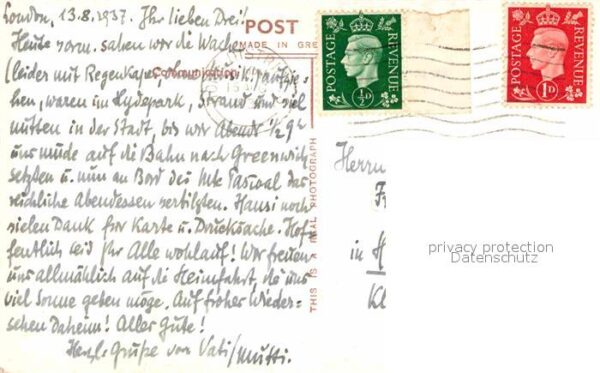 London, 13.8.1937. Ihr lieben Drei!
Heute vorm. sahen wir die Wachen
(leider mit Regenkapes, aufzie-
hen, waren im Hydepark, Strand und viel
mitten in der Stadt, bis wir Abends ½ 9h
uns müde auf die Bahn nach Greenwich
setzten u. nun an Bord des Mte Pascoal das
reichliche Abendessen vertilgten. Hansi noch
vielen Dank für Karte u. Drucksache. Hof-
fentlich seid Ihr Alle wohlauf! Wir freuen
uns allmählich auf die Heimfahrt, die uns
viel Sonne geben möge. Auf froher Wieder-
sehen Daheim! Aller Gute!
Herzl. Grüße von Vati/Mutti.
POST
MADE IN GRE
Communication
THIS IS A REAL PHOTOGRAPH
POSTAGE REVENUE
½D
POSTAGE REVENUE
1D
Herrn
F
in H
Kl
privacy protection
Datenschutz